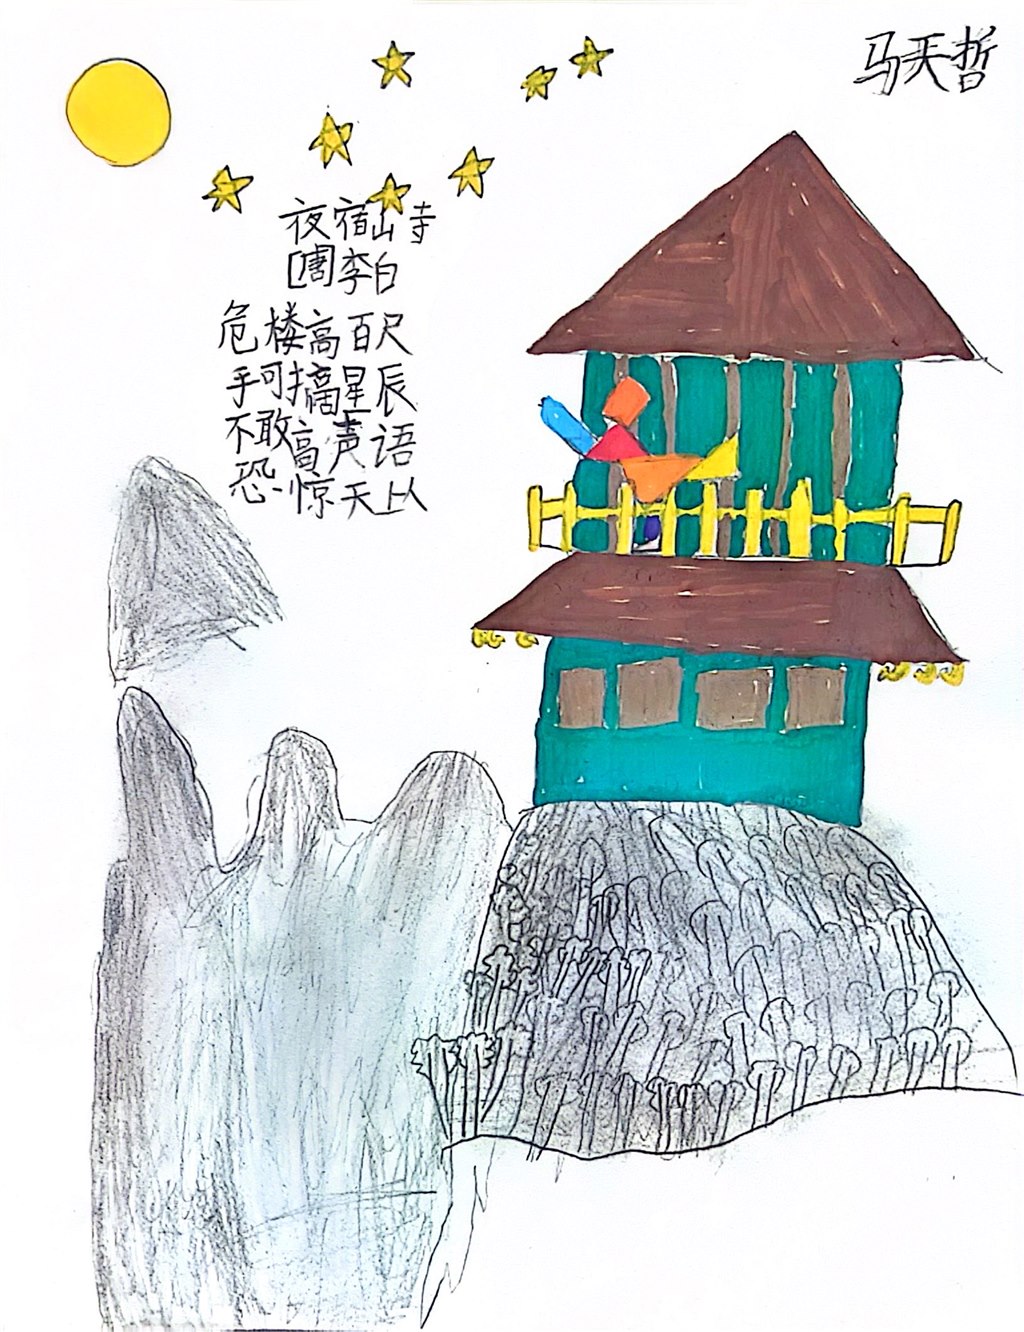 马天哲
夜宿山寺
[唐]李白
危楼高百尺
手可摘星辰
不敢高声语
恐惊天上人